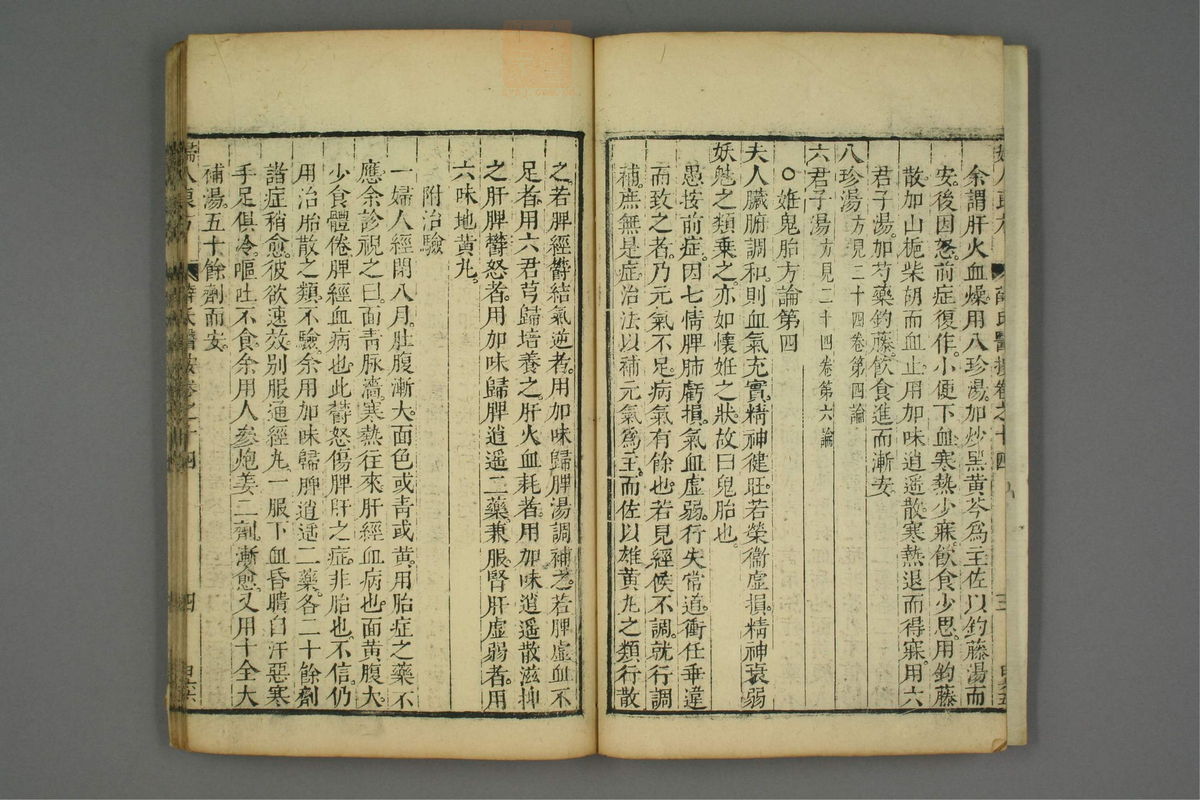 余謂肝火血燥。用八珍湯。加炒黑黃芩爲主佐以鈎藤湯而
安。後因怒。前症復作。小便下血寒熱少寐。飲食少思。用鈎藤
散加山梔柴胡而血止。用加味逍遥散寒熱退而得寐。用六
君子湯。加芍藥鈎藤飲食進而漸安。
八珍湯方見二十四卷第四論
六君子湯方見二十四卷第六論
○妊鬼胎方論第四
夫人臟腑調和。則血氣充實。精神健旺若榮衞虛損。精神衰弱
妖魅之類乗之。亦如懷妊之狀。故曰鬼胎也。
愚按前症。因七情脾肺虧損。氣血虛弱。行失常道。衝任乖違
而致之者。乃元氣不足。病氣有餘也。若見經候不調。就行調
補。庶無是症治法以補元氣爲主。而佐以雄黃丸之類行散
之。若脾經欝結氣逆者。用加味歸脾湯調補之。若脾虛血不
足者。用六君芎歸培養之。肝火血耗者。用加味逍遥散滋抑
之肝脾欝怒者。用加味歸脾逍遥二藥。兼服。腎肝虛弱者。用
六味地黃丸。
附治驗
一婦人經閉八月。肚腹漸大。面色或青或黃。用胎症之藥不
應。余診視之曰。面青脉濇。寒熱往來肝經血病也。面黃腹大。
少食體倦脾經血病也。此欝怒傷脾肝之症。非胎也。不信。仍
用治胎散之類。不驗。余用加味歸脾逍遥二藥。各二十餘劑
諸症稍愈。彼欲速效。别服通經丸。一服下血昏瞶自汗惡寒
手足俱冷。嘔吐不食余用人參炮姜二劑。漸愈。又用十全大
補湯。五十餘劑而安。